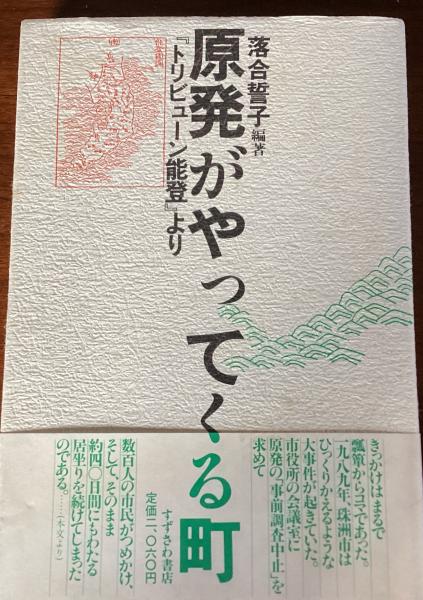 落合誓子編著
原発がやってくる町
『トリビューン能登』より
きっかけはまるで
瓢箪からコマであった。
一九八九年、珠洲市は
ひっくりかえるような
大事件が起きていた。
市役所の会議室に
原発の「事前調査中止」を
求めて
数百人の市民がつめかけ、
そして、そのまま
約四〇日間にもわたる
居坐りを続けてしまった
のである。……(本文より)
すずさわ書店
定価二、〇六〇円